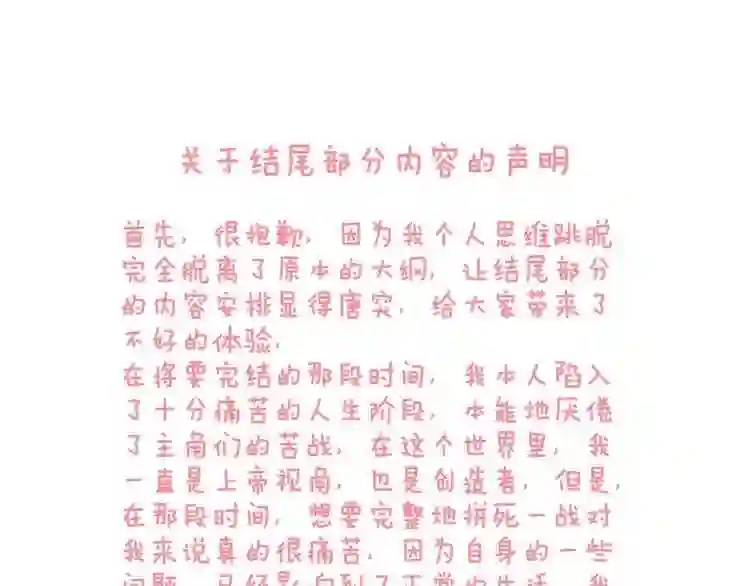 关于结尾部分内容的声明
首先，很抱歉，因为我个人思维跳脱
完全脱离了原本的大纲，让结尾部分
的内容安排显得唐突，给大家带来了
不好的体验.
在将要完结的那段时间，我本人陷入
了十分痛苦的人生阶段，本能地厌倦
了主角们的苦战，在这个世界里，我
一直是上帝视角，也是创造者，但是，
在那段时间，想要完整地拼死一战对
我来说真的很痛苦．因为自身的一些
问题，已经影响到了正常的生活，我